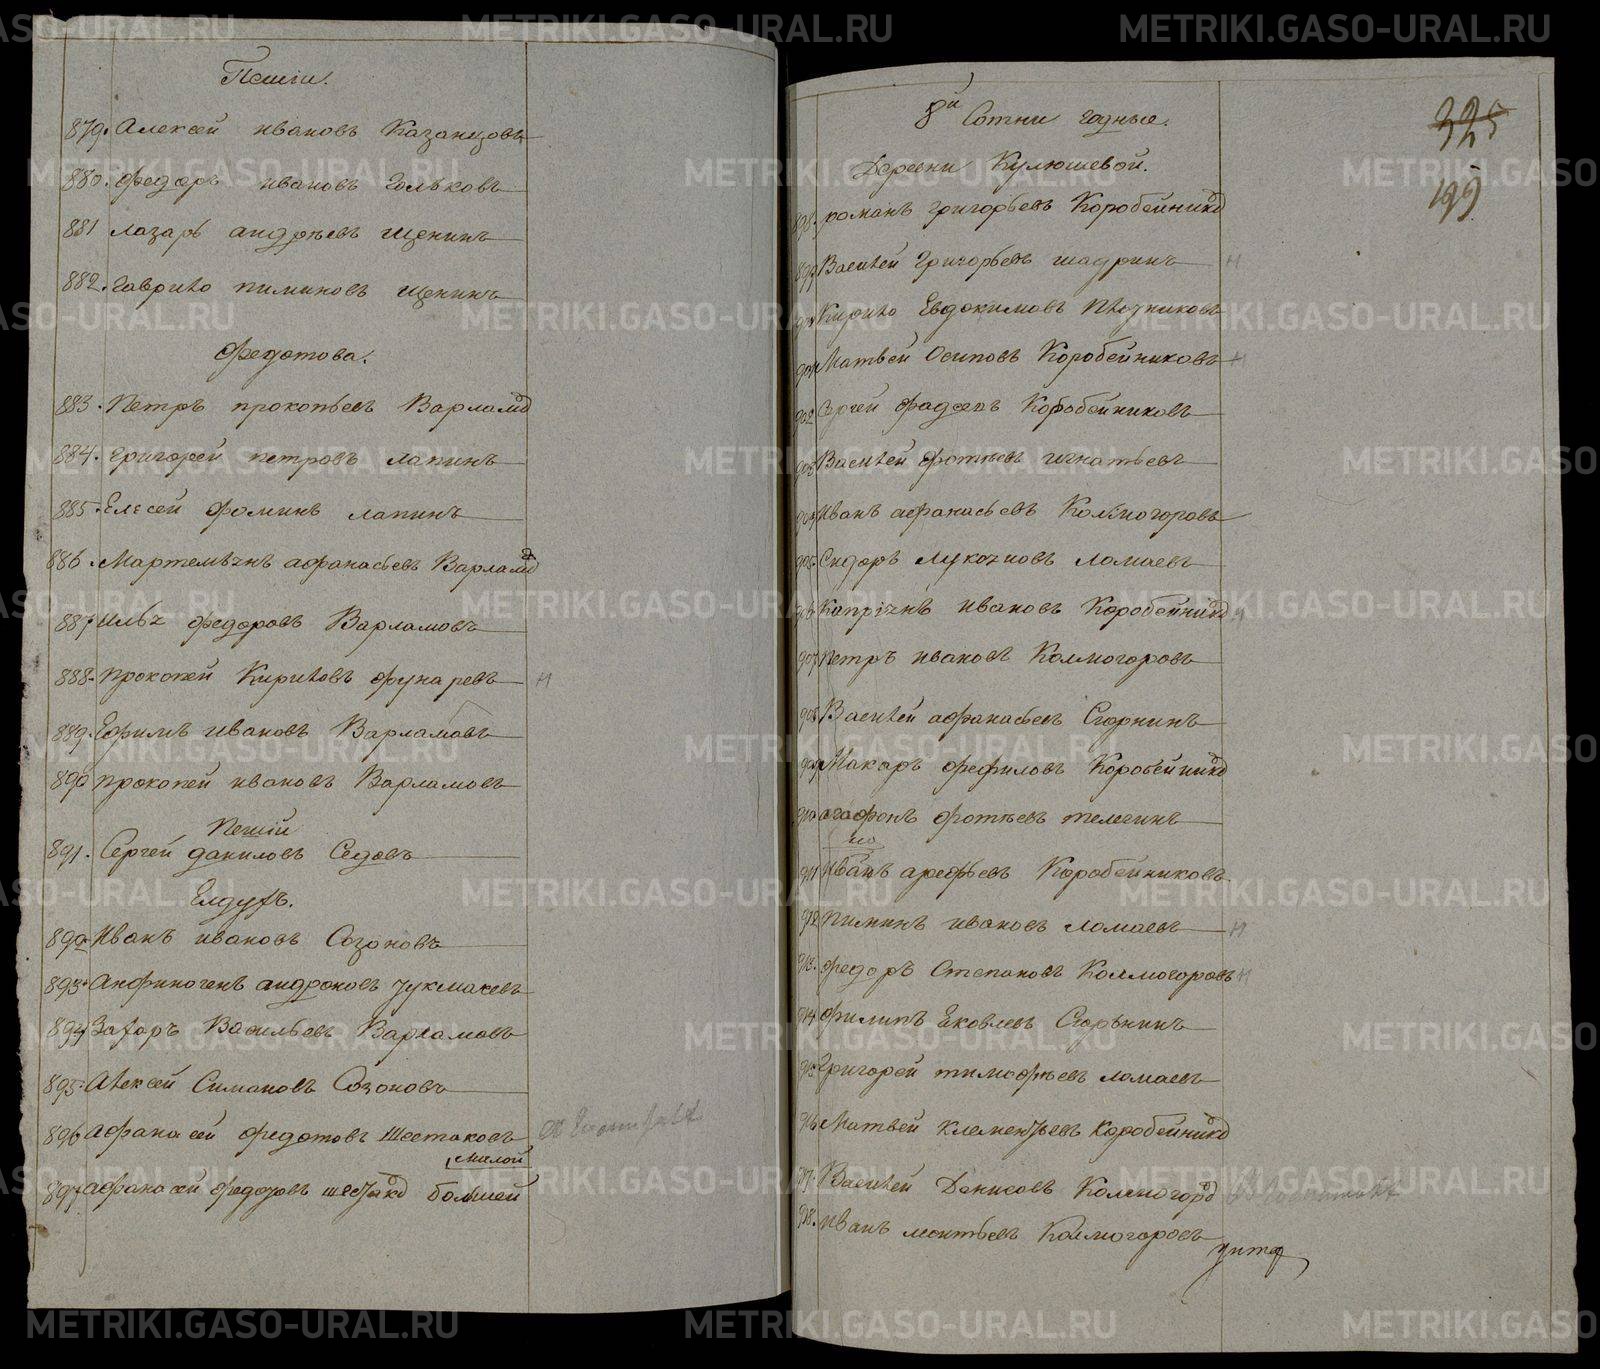 Пешiи.
879. Алексей Ивановъ Казанцовъ
880. Федоръ Ивановъ Голъковъ
881 Лазарь Андреевъ Щенинъ
882. Гаврило Пиминовъ Щенинъ
Федотова.
883. Петръ Прокопьевъ Варламо
884. Григорей Петровъ Лапинъ
885. Елесей Фоминъ Лапинъ
886. Мартемьянъ Афанасьевъ Варламо
887 Илья Федоровъ Варламовъ
888. Прокопей Кириловъ Фунаревъ
889. Ефимъ Ивановъ Варламовъ
890 Прокопей Ивановъ Варламовъ
Пешiй
891. Сергей Даниловъ Седовъ
892 Иванъ Ивановъ Созоновъ
893. Анфиногенъ Андроновъ
894 Захаръ Васильевъ Варламовъ
895. Алексей Симановъ Созоновъ
896 Афанасей Федотовъ Шестаковъ
малой
897 Афанасей Федотовъ Шестако большей
8й Сотни годные.
Деревни Кулюшевой.
325
199
898. Романъ Григорьевъ Коробейнико
899 Василей Григорьевъ Шадринъ
900 Кирило Евдокимовъ Плотниковъ
901 Матвей Осиповъ Коробейниковъ
902 Сергей Фадеевъ Коробейниковъ
903 Василей Фотеевъ Игнатьевъ
904 Иванъ Афанасьевъ Колмогоровъ
905 Сидоръ Лукояновъ Ломаевъ
906 Капрiянъ Ивановъ Коробейнико
907 Петръ Ивановъ Колмогоровъ
908 Василей Афанасьевъ
909 Макаръ Фефиловъ Коробейнико
910 Агафонъ Фотеевъ Телегинъ
911 Иванъ Арефьевъ Коробейниковъ
912 Пиминъ Ивановъ Ломаевъ
913. Федоръ Степановъ Колмогоровъ
914 Филипъ Яковлевъ
915 Григорей Тимофеевъ Ломаевъ
916 Матвей Клементьевъ Коробейнико
917. Василей Денисовъ Колмогоро
918. Иванъ Леонтьевъ Колмогоровъ
METRIKI.GASO-URAL.RU